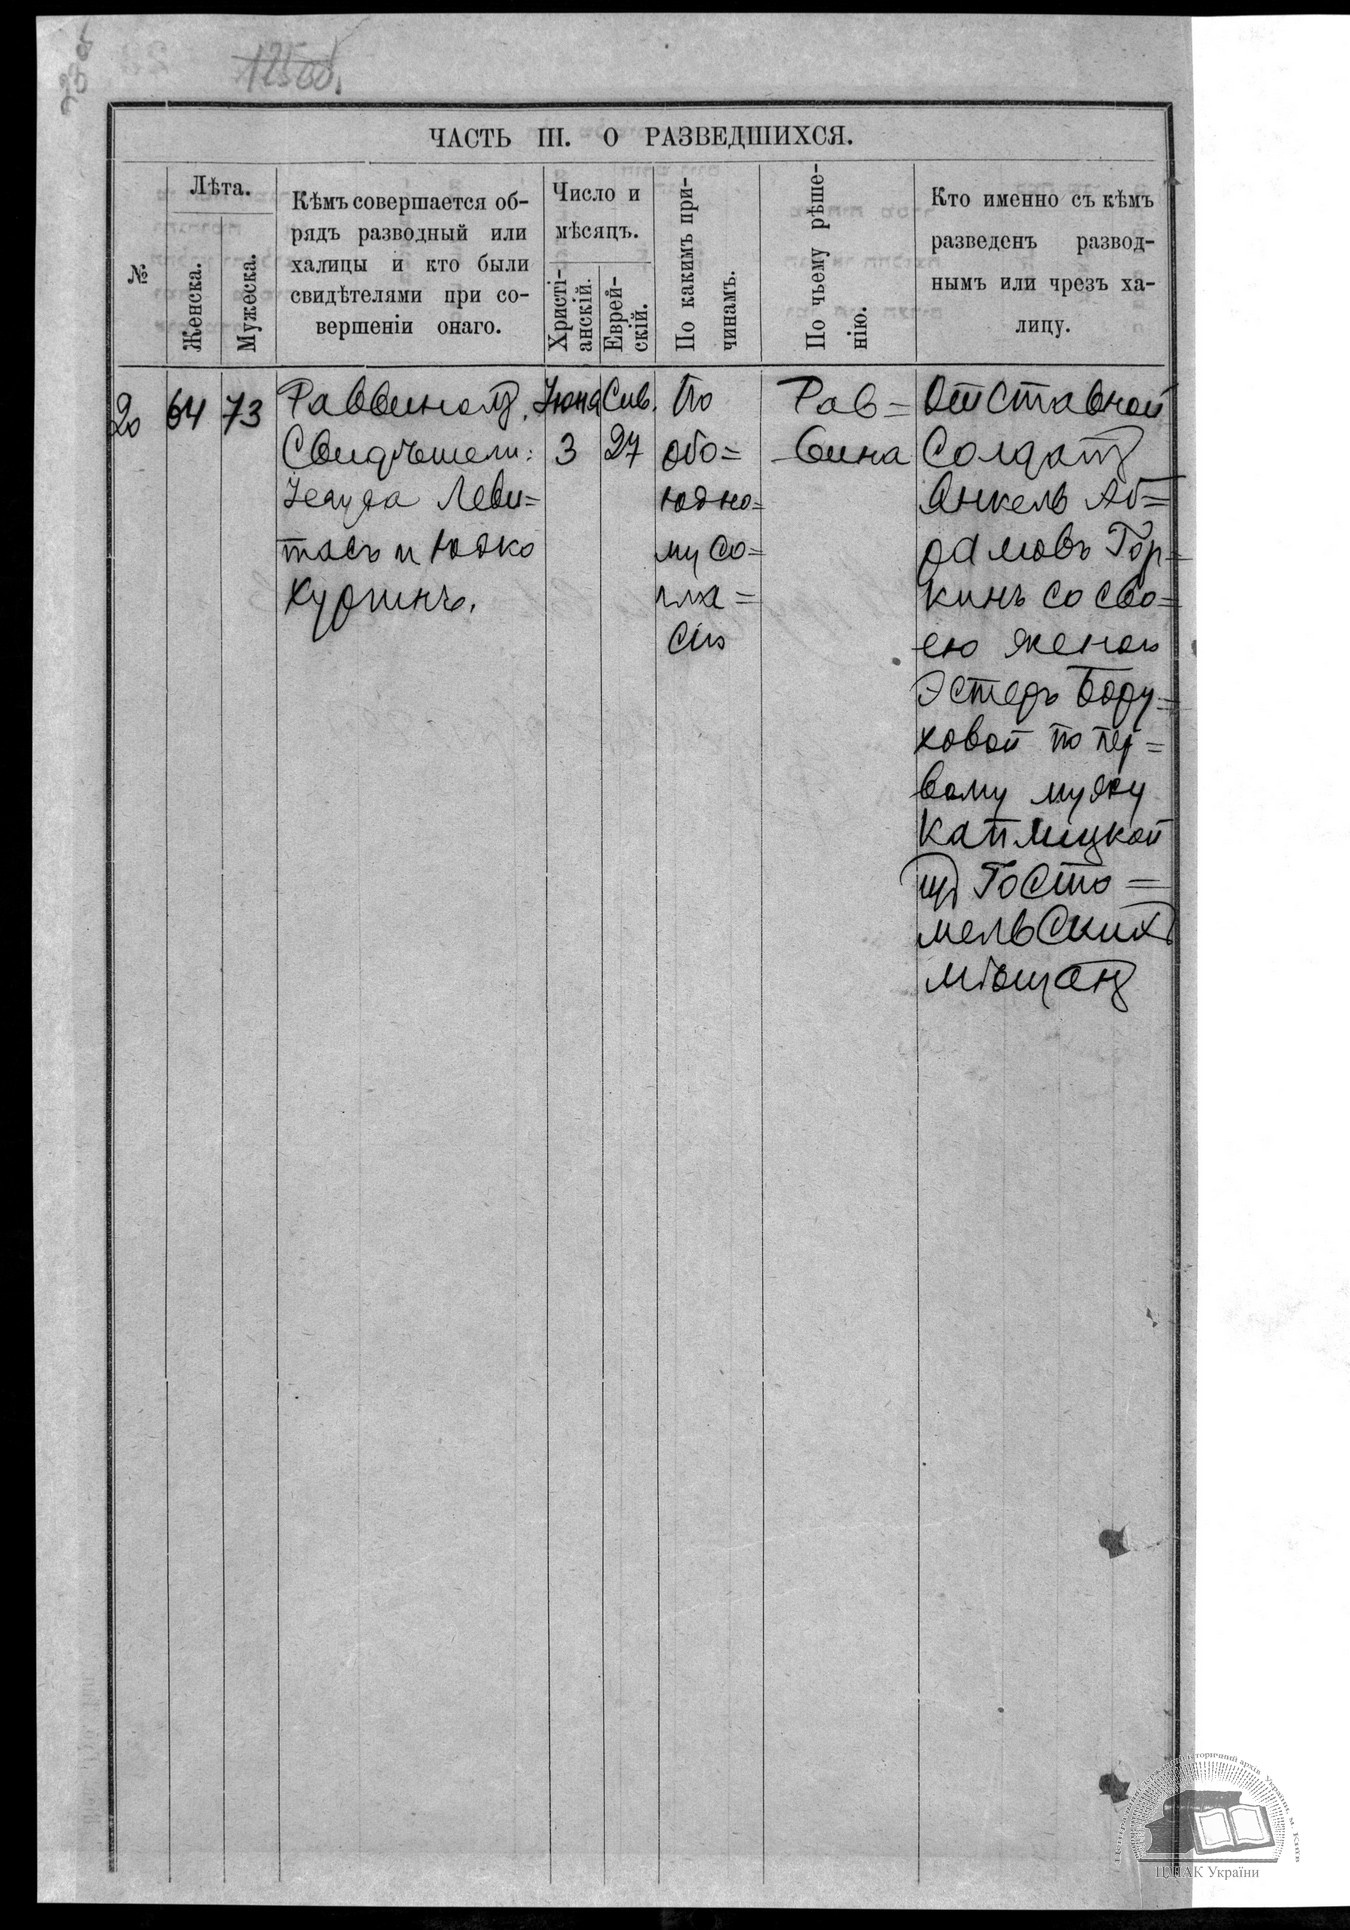 12500.
ЧАСТЬ III. О РАЗВЕДШИХСЯ.
№
Лѣта.
Женска.
Мужеска.
Кѣмъ совершается об-
рядъ разводный или
халицы и кто были
свидѣтелями при со-
вершеніи онаго.
Число и
мѣсяцъ.
Христі-
анскій.
Еврей-
скій.
По какимъ при-
чинамъ.
По чьему рѣше-
нію.
Кто именно съ кѣмъ
разведенъ развод-
нымъ или чрезъ ха-
лицу.
20
64
73
Раввиномъ.
Свидѣтели:
Іегуда Леви=
тасъ и Юдко
Хургинъ.
Іюня
3
Сив.
27
По
обо=
юдно=
му со=
гла=
сію
Рав=
вина
Отставной
Солдатъ
Янкель Аб=
рамовъ Гор=
кинъ со сво=
ею женою
Эстеръ Бору=
ховой по пер=
вому мужу
Каплицкой
изъ Госто=
мельскихъ
мѣщанъ
ЦДІАК України